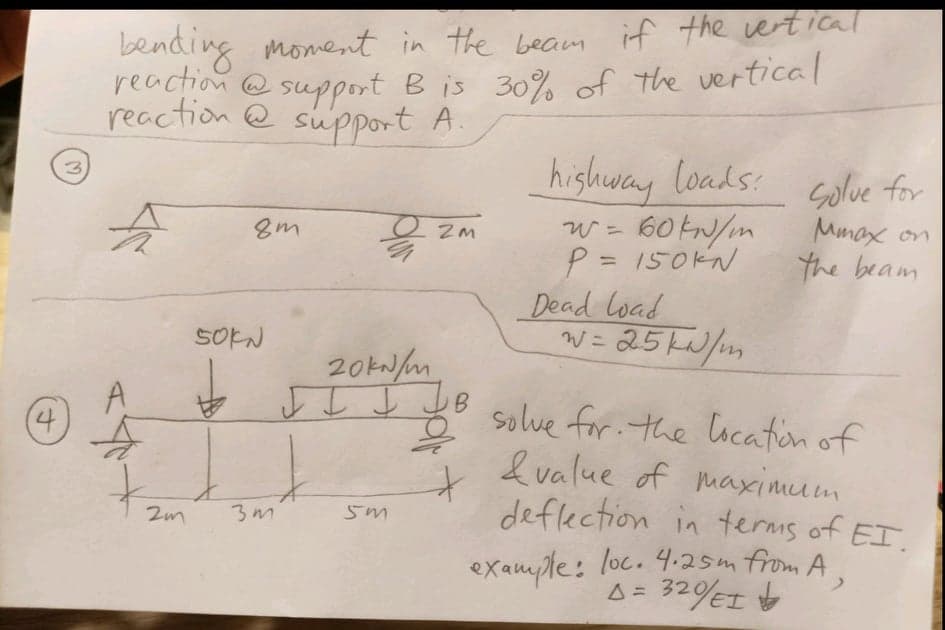 bending moment in the beam if the vertical
reaction @ support B is 30% of the vertical
reaction @ support A.
3
highway loads:
solve for
8m
2m
w = 60kN/m
Mmax on
P = 150kN
the beam
Dead load
w = 25kN/m
50kN
20kN/m
4
A
B
solve for the location of
& value of maximum
2m
3m
5m
deflection in terms of EI.
example: loc. 4.25m from A,
Δ = 320/EI ↓